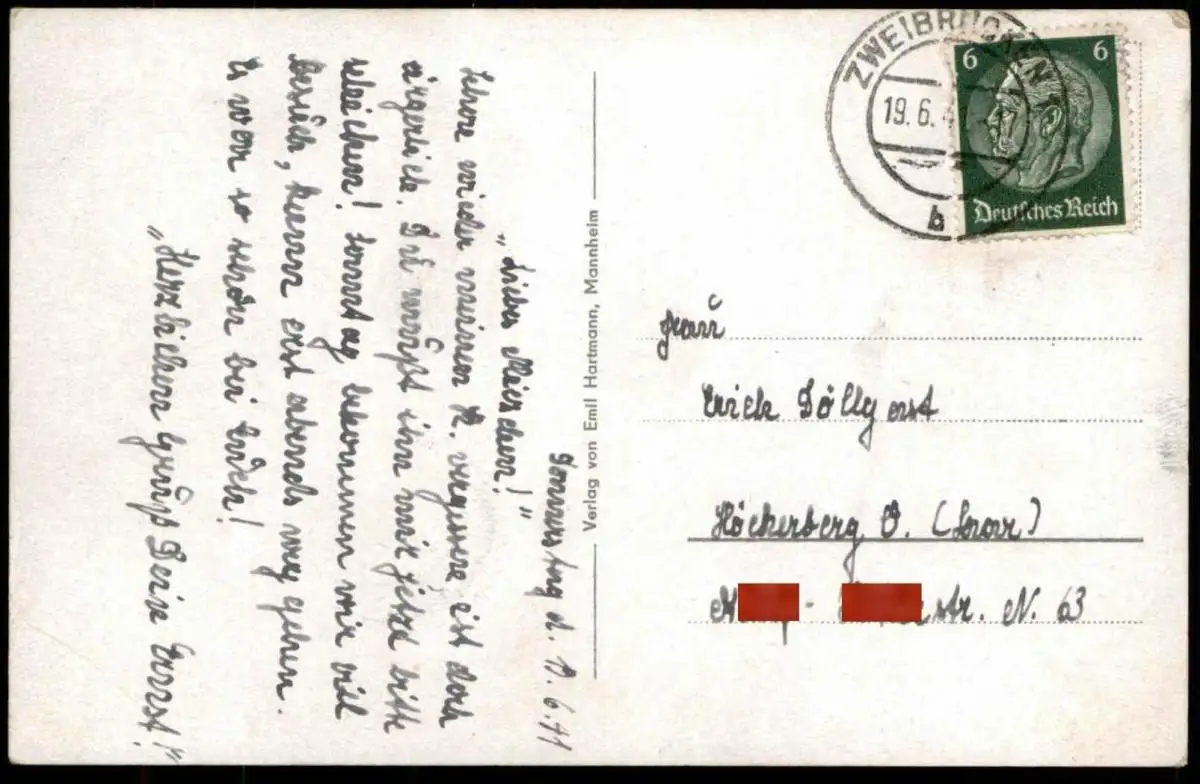 ZWEIBRÜCKEN
19. 6.
b
6 6
Deutsches Reich
Verlag von Emil Hartmann, Mannheim
Donnerstag d. 19. 6. 41
„Liebes
Schon wieder meinen R. vergessen ist doch
ärgerlich. Du mußt ihn mir jetzt bitte
schicken! Sonntag bekommen wir viel
besuch, kann erst abends weg gehen.
Es war so schön bei Euch!
„Herzlichen Gruß Deine
Frau
Erich Döllgast
Höcherberg (Saar)
str. N. 63